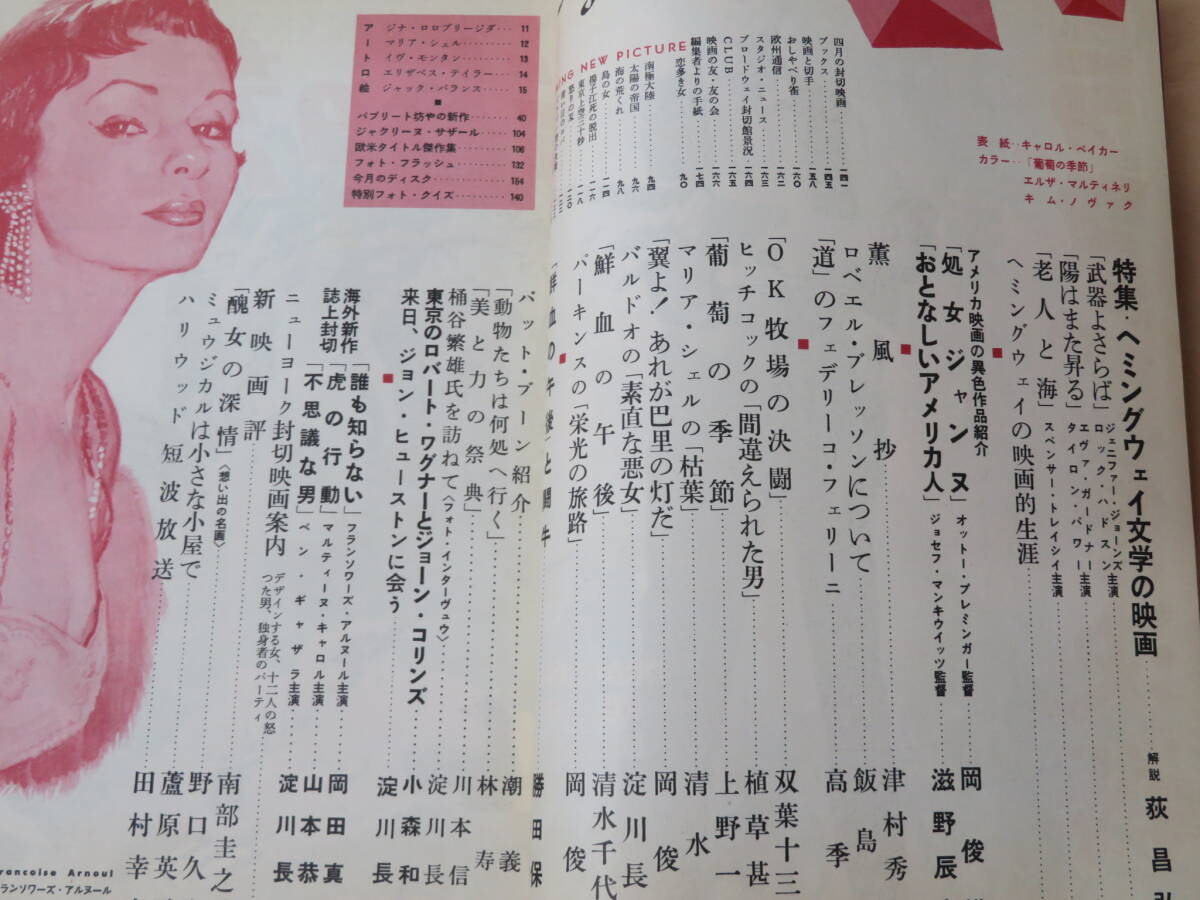 表紙‥キャロル・ベイカー
カラー‥「葡萄の季節」
エルザ・マルティネリ
キム・ノヴァク
特集・ヘミングウェイ文学の映画 解説 荻昌
「武器よさらば」ジェニファー・ジョーンズ ロック・ハドスン主演
「陽はまた昇る」エヴァ・ガードナー タイロン・パワー主演
「老人と海」スペンサー・トレイシイ主演
ヘミングウェイの映画的生涯
アメリカ映画の異色作品紹介
「処女ジャンヌ」オットー・プレミンガー監督 岡俊
「おとなしいアメリカ人」ジョセフ・マンキウイッツ監督 滋野辰
薫風抄 津村秀
ロベエル・ブレッソンについて 飯島
「道」のフェデリーコ・フェリーニ 高季
「OK牧場の決闘」 双葉十三
ヒッチコックの「間違えられた男」 植草甚
「葡萄の季節」 上野一
マリア・シェルの「枯葉」 清水
「翼よ!あれが巴里の灯だ」 岡俊
バルドオの「素直な悪女」 淀川長
「鮮血の午後」 清水千代
パーキンスの「栄光の旅路」 岡俊
「鮮血の午後」と闘牛 勝田保
パット・ブーン紹介 潮義
「動物たちは何処へ行く」 林寿
「美と力の祭典」 川本信
桶谷繁雄氏を訪ねて〈フォト・インターヴュウ〉 淀川長
東京のロバート・ワグナーとジョーン・コリンズ 小森和
来日、ジョン・ヒューストンに会う 淀川長
海外新作誌上封切
「誰も知らない」フランソワーズ・アルヌール主演 岡田真
「虎の行動」マルティーヌ・キャロル主演 山本恭
「不思議な男」ベン・ギャザラ主演 淀川長
ニューヨーク封切映画案内
新映画評 デザインする女、十二人の怒つた男、独身者のパーティ
「醜女の深情」〈想い出の名画〉 南部圭之
ミュウジカルは小さな小屋で 野口久
ハリウッド短波放送 蘆原英
田村幸
四月の封切映画 一四一
ブックス 一四五
映画と切手 一五八
おしゃべり雀 一六〇
欧州通信 一六二
スタジオ・ニュース 一六三
ブロードウェイ封切館景況 一六四
CLUB 一六五
映画の友・友の会 一六六
編集者よりの手紙 一七四
NEW PICTURE
恋多き女 九〇
南極大陸 九四
太陽の帝国 九六
海の荒くれ 九八
島の女 一一四
揚子江死の脱出 一一六
東京上空三十秒 一一八
怒りの河 一二〇
アート口絵
ジナ・ロロブリージダ 11
マリア・シェル 12
イヴ・モンタン 13
エリザベス・テイラー 14
ジャック・パランス 15
パブリート坊やの新作 40
ジャクリーヌ・サザール 104
欧米タイトル傑作集 106
フォト・フラッシュ 132
今月のディスク 154
特別フォト・クイズ 140
rancoise Arnoul
ランソワーズ・アルヌール